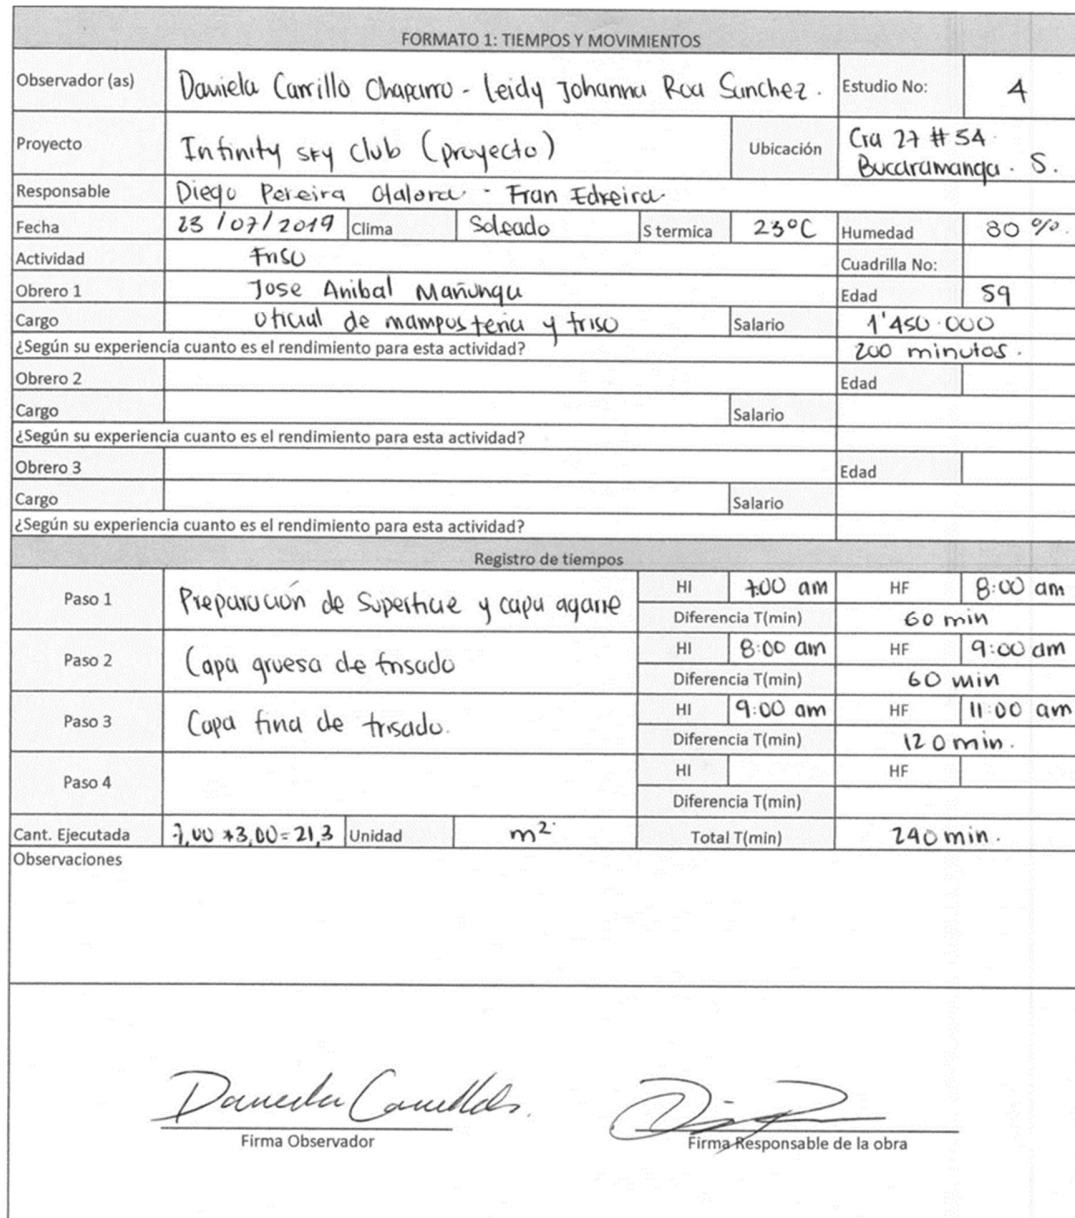 FORMATO 1: TIEMPOS Y MOVIMIENTOS
Observador (as) Daniela Carrillo Chaparro - Leidy Johanna Roa Sanchez. Estudio No: 4
Proyecto Infinity sky club (proyecto) Ubicación Cra 27 # 54
Bucaramanga. S.
Responsable Diego Pereira Otalora - Fran Edreira
Fecha 23/07/2019 Clima Soleado S termica 23°C Humedad 80 %.
Actividad Friso Cuadrilla No:
Obrero 1 Jose Anibal Mañunga Edad 59
Cargo oficial de mamposteria y friso Salario 1'450.000
¿Según su experiencia cuanto es el rendimiento para esta actividad? 200 minutos.
Obrero 2 Edad
Cargo Salario
¿Según su experiencia cuanto es el rendimiento para esta actividad?
Obrero 3 Edad
Cargo Salario
¿Según su experiencia cuanto es el rendimiento para esta actividad?
Registro de tiempos
Paso 1 Preparación de Superficie y capa agarre HI 7:00 am HF 8:00 am
Diferencia T(min) 60 min
Paso 2 Capa gruesa de frisado HI 8:00 am HF 9:00 am
Diferencia T(min) 60 min
Paso 3 Capa fina de frisado. HI 9:00 am HF 11:00 am
Diferencia T(min) 120 min.
Paso 4 HI HF
Diferencia T(min)
Cant. Ejecutada 7,00 *3,00=21,3 Unidad m² Total T(min) 240 min.
Observaciones
Daniela Carrillo
Firma Observador Firma Responsable de la obra